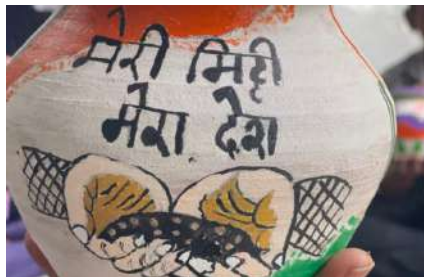 मेरी मिट्टी
मेरा देश